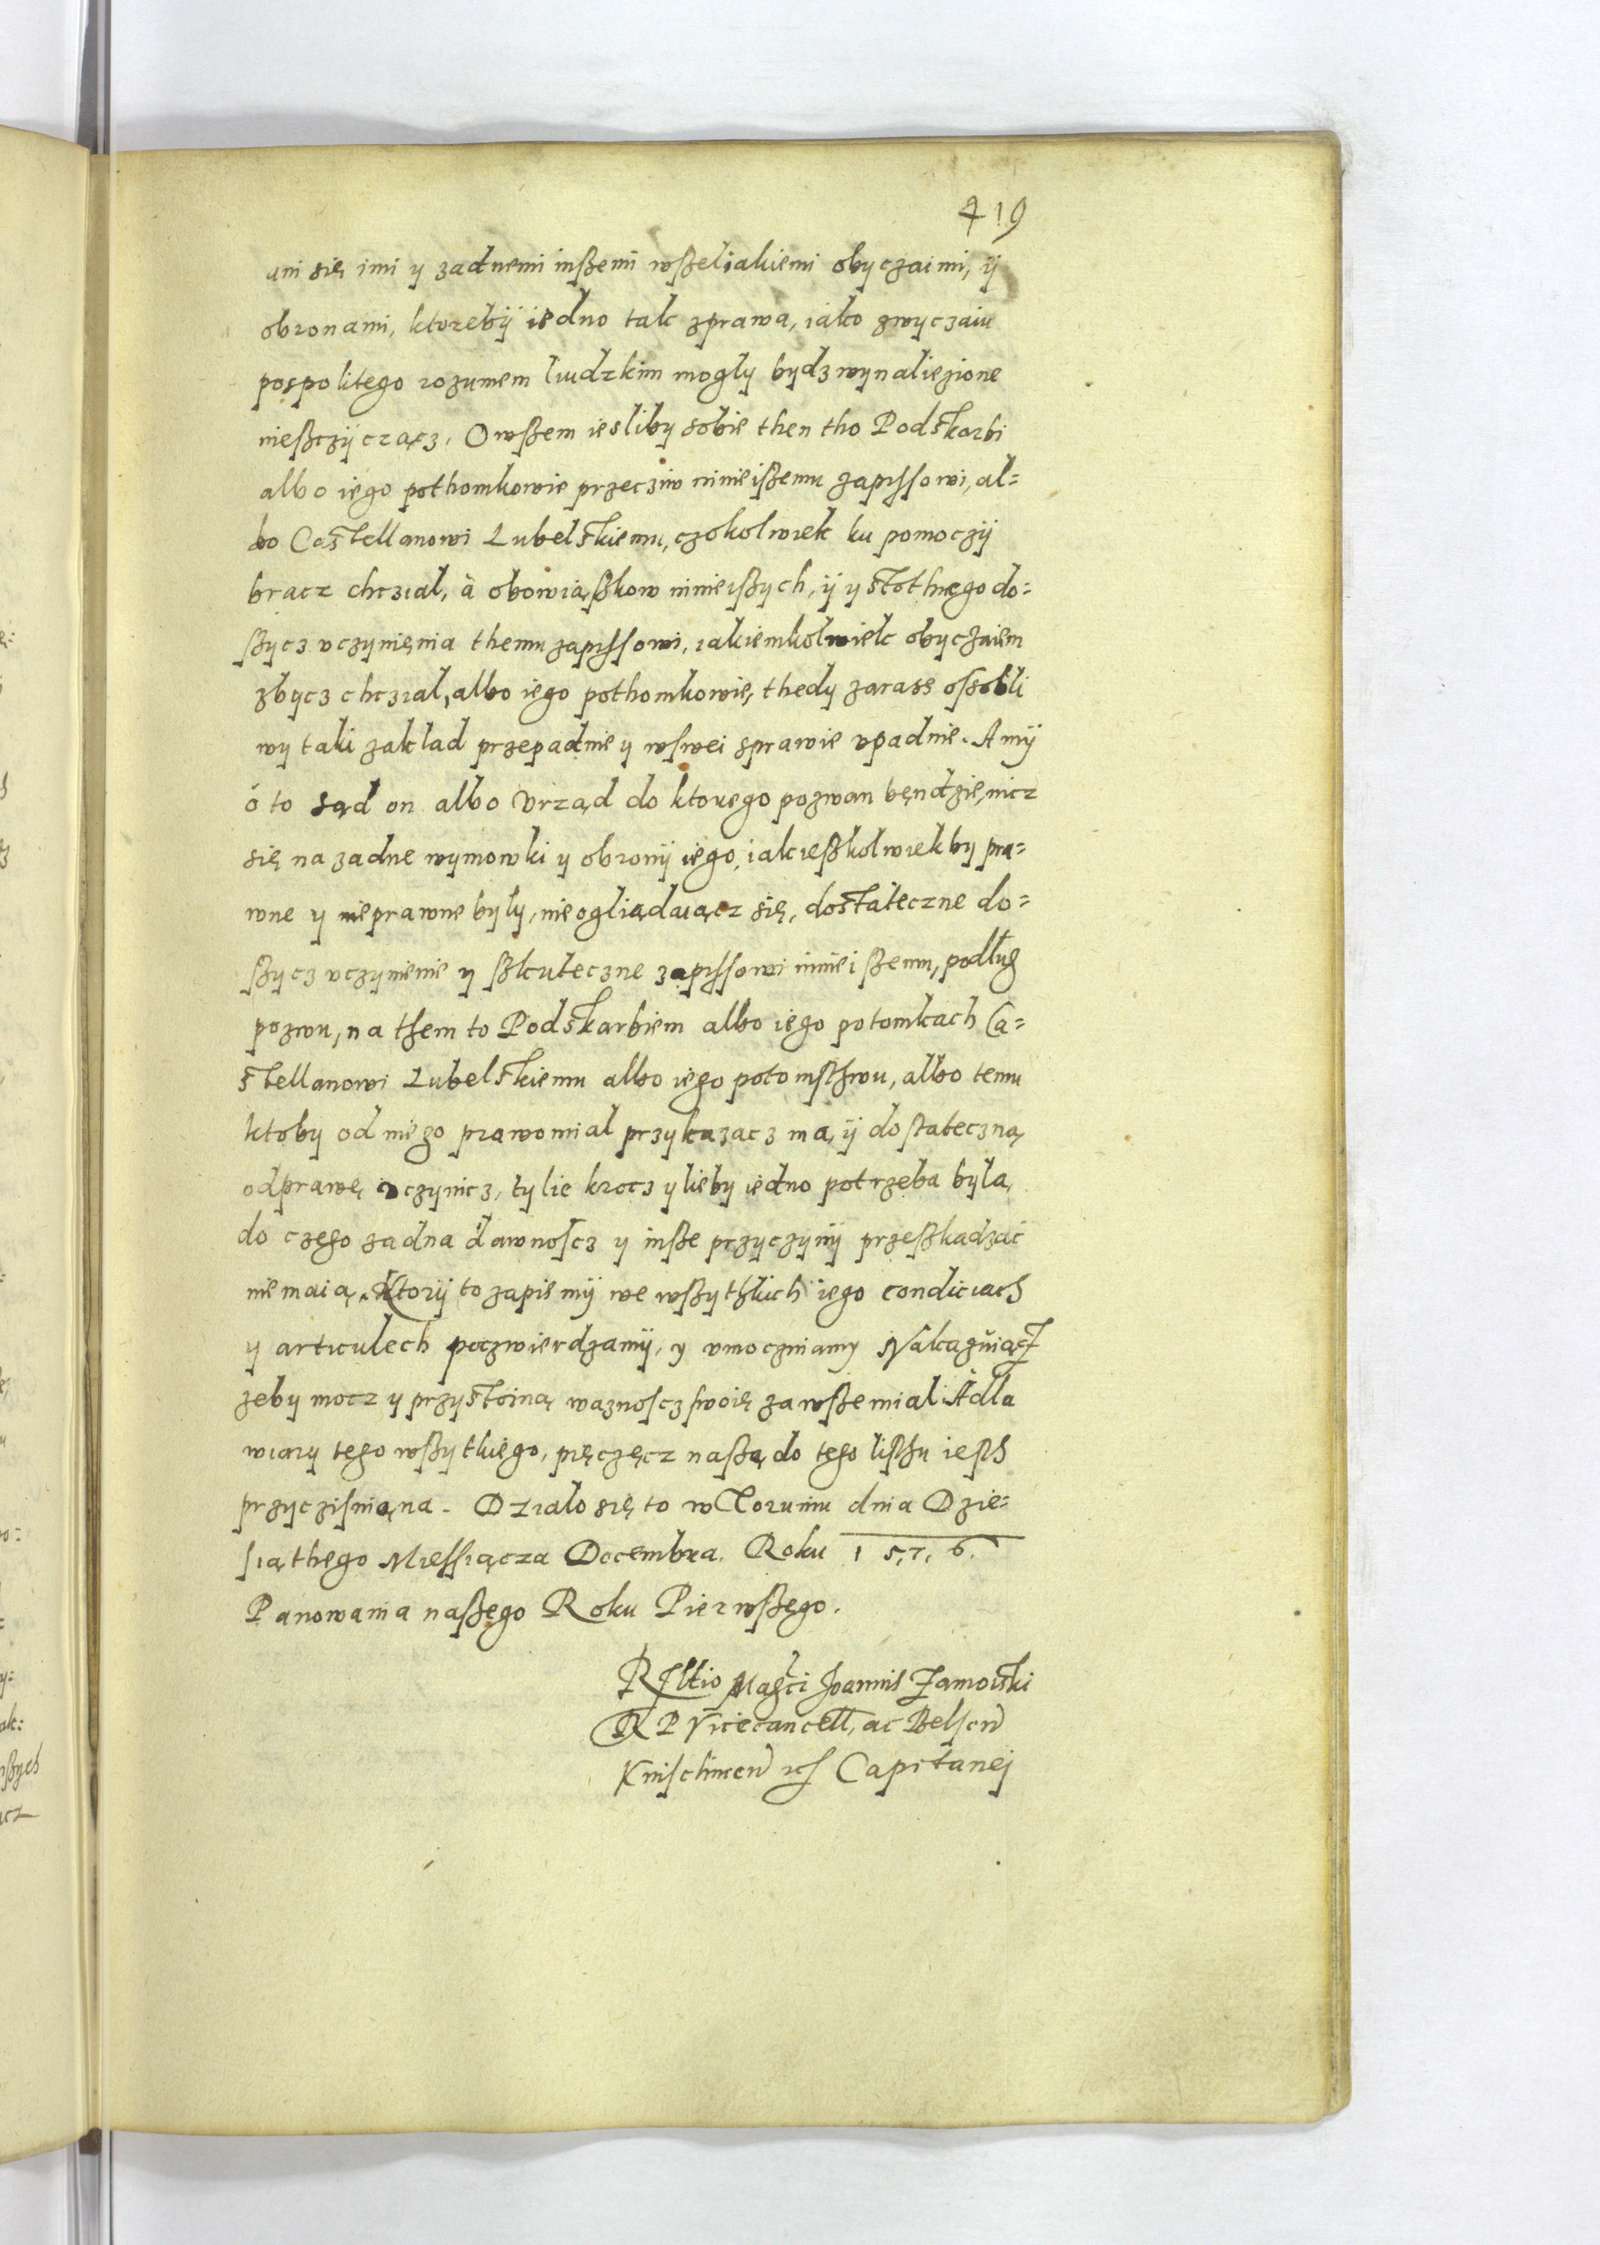 419
ani się imi y zadnemi inßemi wßeliakiemi obyczaimi, ÿ
obronami, ktorebÿ iedno tak zprawa, iako zwyczaiu
pospolitego rozumem liudzkim mogly bydz wynaliezione
nießczÿczącz. Owßem iesliby sobie then tho Podskarbi
albo iego pothomkowie przecziw ninieißemu zapissowi, al=
bo Castellanowi Lubelskiemu, czokolwiek ku pomoczÿ
bracz chczial, à obowiąßkow ninieißych, ÿ ystothnego do=
ßycz vczynięnia themu zapissowi, iakiemkolwiek obyczaiem
zbycz chczial, albo iego pothomkowie, thedy zarase ossobli
wy taki zaklad przepadnie y wswei sprawie vpadnie. A mÿ
ó to sąd on albo Vrząd do ktorego pozwan bęndzie, nicz
się na zadne wymowki y obronÿ iego, iakießkolwiekby pra=
wne y nieprawne były, nieogliądaiącz się, dostateczne do=
ßycz vczynienie y ßkuteczne zapissowi ninieißemu, podług
pozwu, na them to Podskarbiem albo iego potomkach Ca=
stellanowi Lubelskiemu albo iego potomsthwu, albo temu
ktoby od niego prawo mial przykazacz ma, ÿ dostateczną
odprawę vczynicz, tylie krocz ylieby iedno potrzeba była,
do czego zadna dawnoscz y inße przyczynÿ przeßkadzać
nie maią. Ktorÿ to zapis mÿ we wßythkich iego condiciach
y articulech poczwierdzamÿ, y vmoczniamy
zeby mocz y przystoiną waznoscz swoię zawße mial A dla
wiary tego wßytkiego, pięczęcz naßą do tego listhu iesth
przyczisnięna. Dzialo się to w Toruniu dnia Dzie=
siąthego Miessiącza Decembra. Roku 1576.
Panowania naßego Roku Pierwßego.
Rltio Magci Joannis Zamoiski
R P Vicecancell, ac Belsen
Knischinen Capitanej